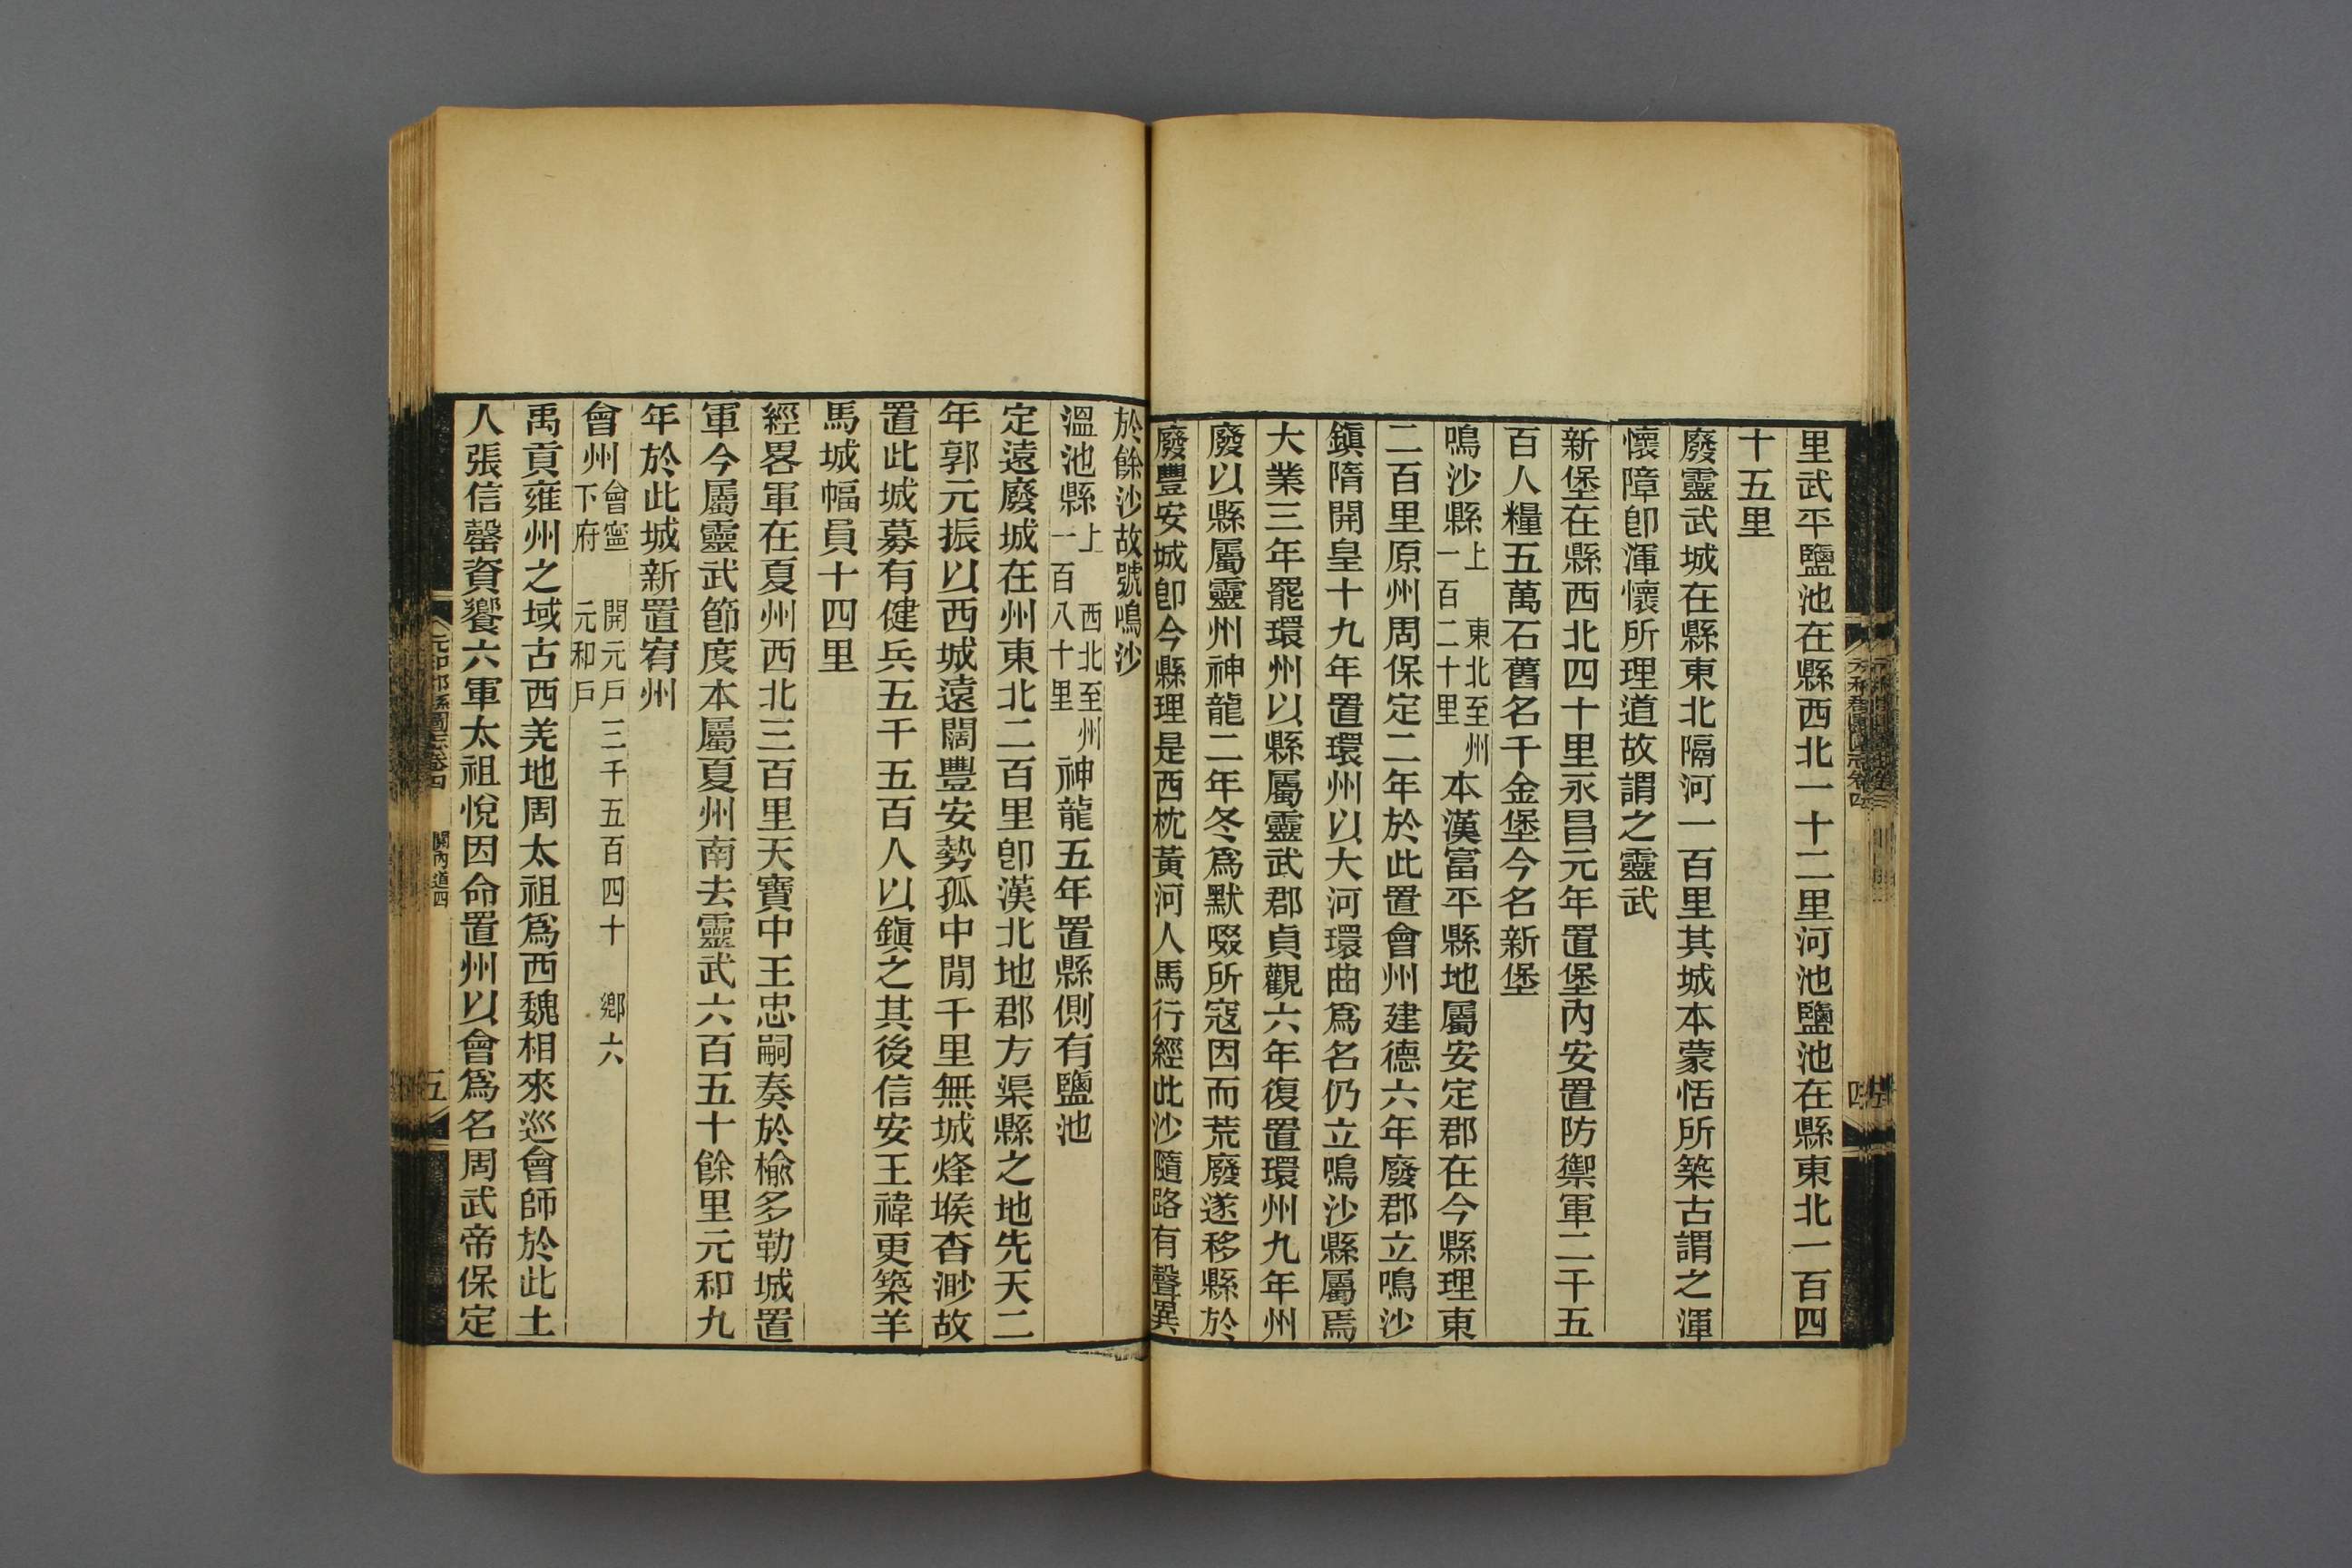 里武平鹽池在縣西北一十二里河池鹽池在縣東北一百四
十五里
廢靈武城在縣東北隔河一百里其城本蒙恬所築古謂之渾
懷障卽渾懷所理道故謂之靈武
新堡在縣西北四十里永昌元年置堡內安置防禦軍二千五
百人糧五萬石舊名千金堡今名新堡
鳴沙縣上 東北至州一百二十里本漢富平縣地屬安定郡在今縣理東
二百里原州周保定二年於此置會州建德六年廢郡立鳴沙
鎮隋開皇十九年置環州以大河環曲爲名仍立鳴沙縣屬焉
大業三年罷環州以縣屬靈武郡貞觀六年復置環州九年州
廢以縣屬靈州神龍二年冬爲默啜所寇因而荒廢遂移縣於
廢豐安城卽今縣理是西枕黃河人馬行經此沙隨路有聲異
於餘沙故號鳴沙
溫池縣上 西北至州一百八十里神龍五年置縣側有鹽池
定遠廢城在州東北二百里卽漢北地郡方渠縣之地先天二
年郭元振以西城遠闊豐安勢孤中閒千里無城烽堠杳渺故
置此城募有健兵五千五百人以鎮之其後信安王禕更築羊
馬城幅員十四里
經畧軍在夏州西北三百里天寶中王忠嗣奏於榆多勒城置
軍今屬靈武節度本屬夏州南去靈武六百五十餘里元和九
年於此城新置宥州
會州會寧下府 開元戶三千五百四十 鄉六 元和戶
禹貢雍州之域古西羌地周太祖爲西魏相來巡會師於此土
人張信罄資饗六軍太祖悅因命置州以會爲名周武帝保定
元和郡縣圖志卷四 關內道四
五